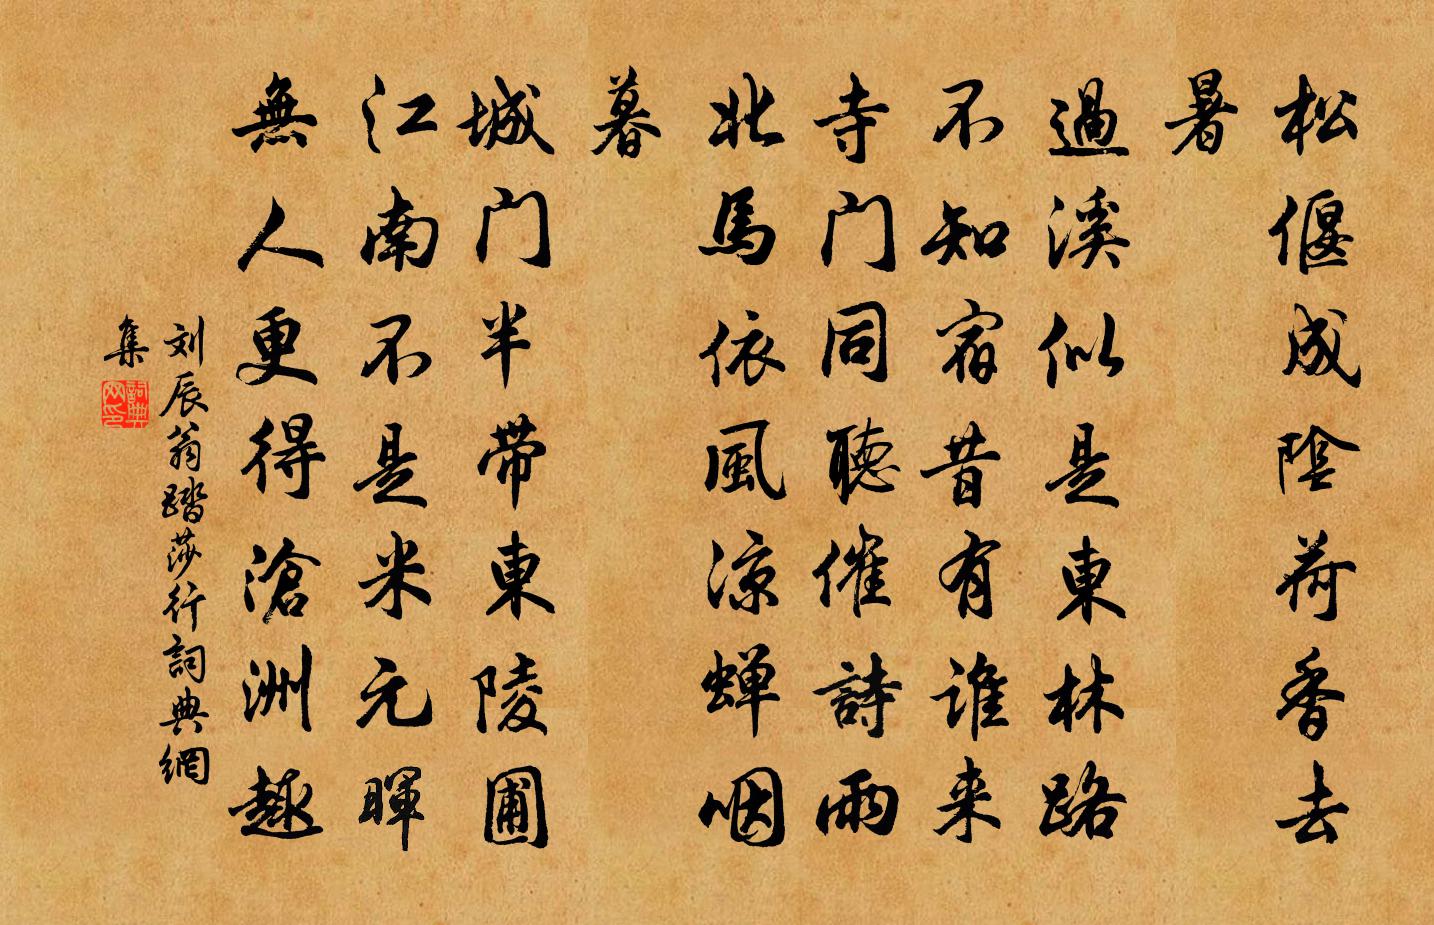 松偃成陰荷香去
暑
過溪似是東林路
不知宿昔有誰来
寺门同聽催詩雨
北馬依風凉蝉咽
暮
城门半带東陵圃
江南不是米元暉
無人更得滄洲趣
刘辰翁踏莎行詞典網
集
詞典网印